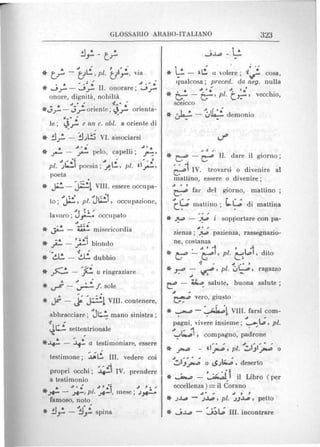 GLOSSARIO ARABO-ITALIANO 323
شرع - شرك
* شرع — شارع, pl. شوارع, via
* شرف — شرّف II. onorare; شرف
onore, dignità, nobiltà
* شرق — شرق oriente; شرقي orienta-
le; شرقي e un c. obl. a oriente di
* شرك — شارك VI. associarsi
* شعر — شعر pelo, capelli; شعر,
pl. أشعار poesia; شاعر, pl. شعراء,
poeta
* شغل — اشتغل VIII. essere occupa-
to; شغل, pl. أشغال, occupazione,
lavoro; مشغول occupato
* شفق — شفقة misericordia
* شقر — أشقر biondo
* شك — شك dubbio
* شكر — شكر a ringraziare
* شمس — شمس f. sole
* شمل — اشتمل VIII. contenere,
abbracciare; شمال mano sinistra;
شمالي settentrionale
* شهد — شهد a testimoniare, essere
testimone; شاهد III. vedere coi
propri occhi; أشهد IV. prendere
a testimonio
* شهر — شهر, pl. أشهر, mese; مشهور
famoso, noto
* شوك — شوك spina
شاء - صدف
* شاء — شاء a volere; شيء cosa,
qualcosa; preced. da neg. nulla
* شيخ — شيخ, pl. شيوخ, vecchio,
sceicco
* شيطن — شيطان demonio
ص
* صبح — صبّح II. dare il giorno;
أصبح IV. trovarsi o divenire al
mattino, essere o divenire;
صبح far del giorno, mattino;
صباح mattino; صباحا di mattina
* صبر — صبر i sopportare con pa-
zienza; صبر pazienza, rassegnazio-
ne, costanza
* صبع — إصبع, pl. أصابع, dito
* صبي — صبي, pl. صبيان, ragazzo
* صح — صحة salute, buona salute;
صحيح vero, giusto
* صحب — اصطحب VIII. farsi com-
pagni, vivere insieme; صاحب, pl.
أصحاب, compagno, padrone
* صحر — صحراء, pl. صحراوات o
صحارى, deserto
* صحف — المصحف il Libro (per
eccellenza) = il Corano
* صدر — صدر, pl. صدور, petto
* صدف — صادف III. incontrare